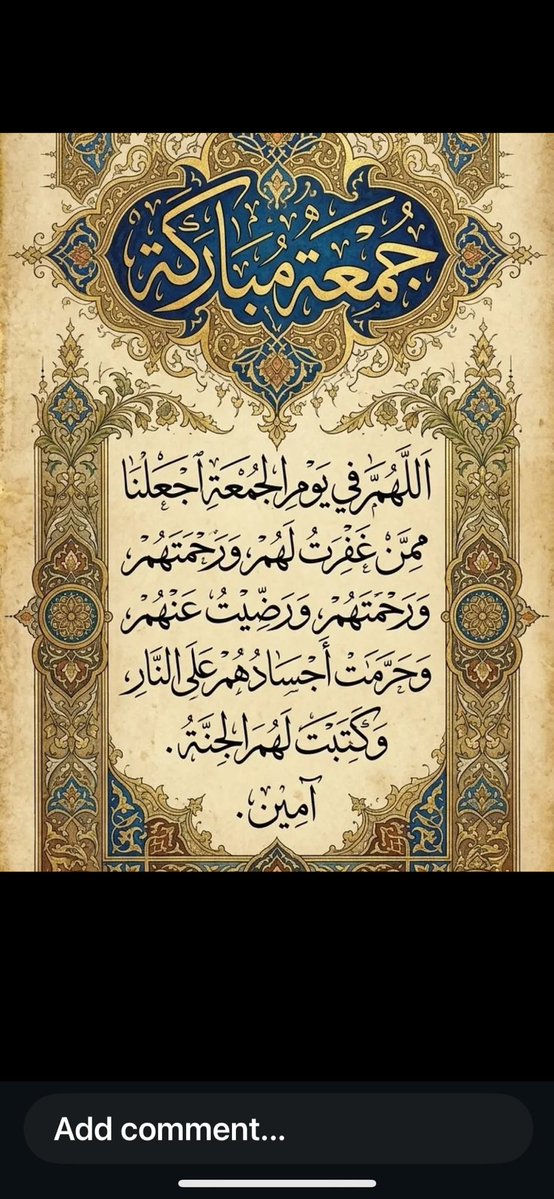 جُمْعَة مُبَارَكَة
اَللَّهُمَّ فِي يَوْمِ الجُمْعَةِ اَجْعَلْنَا
مِمَّنْ غَفَرْتُ لَهُمْ وَرَحْمَتَهُمْ
وَرَحْمَتَهُمْ وَرَضِّيْتُ عَنْهُمْ
وَحَرَّمَتْ أَجْسَادُهُمْ عَلَى النَّارِ،
وَكَتِبَتْ لَهُمَ الجِنَّةُ.
آمِين.
Add comment...